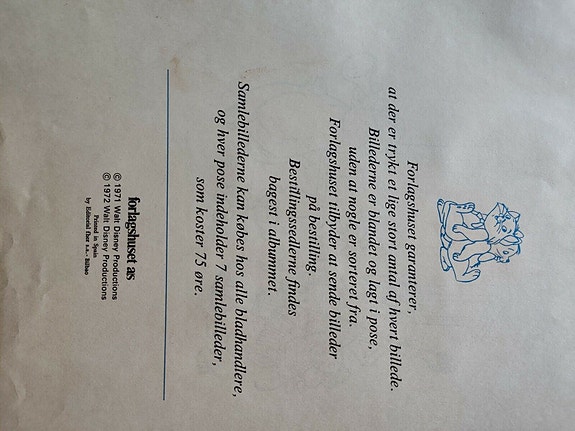 Forlagshuset garanterer,
at der er trykt et lige stort antal af hvert billede.
Billederne er blandet og lagt i pose,
uden at nogle er sorteret fra.
Forlagshuset tilbyder at sende billeder
på bestilling.
Bestillingssedlerne findes
bagest i albummet.
Samlebillederne kan købes hos alle bladhandlere,
og hver pose indeholder 7 samlebilleder,
som koster 75 øre.
forlagshuset as
© 1971 Walt Disney Productions
© 1972 Walt Disney Productions
Printed in Spain
by Editorial Fher s.a. - Bilbao